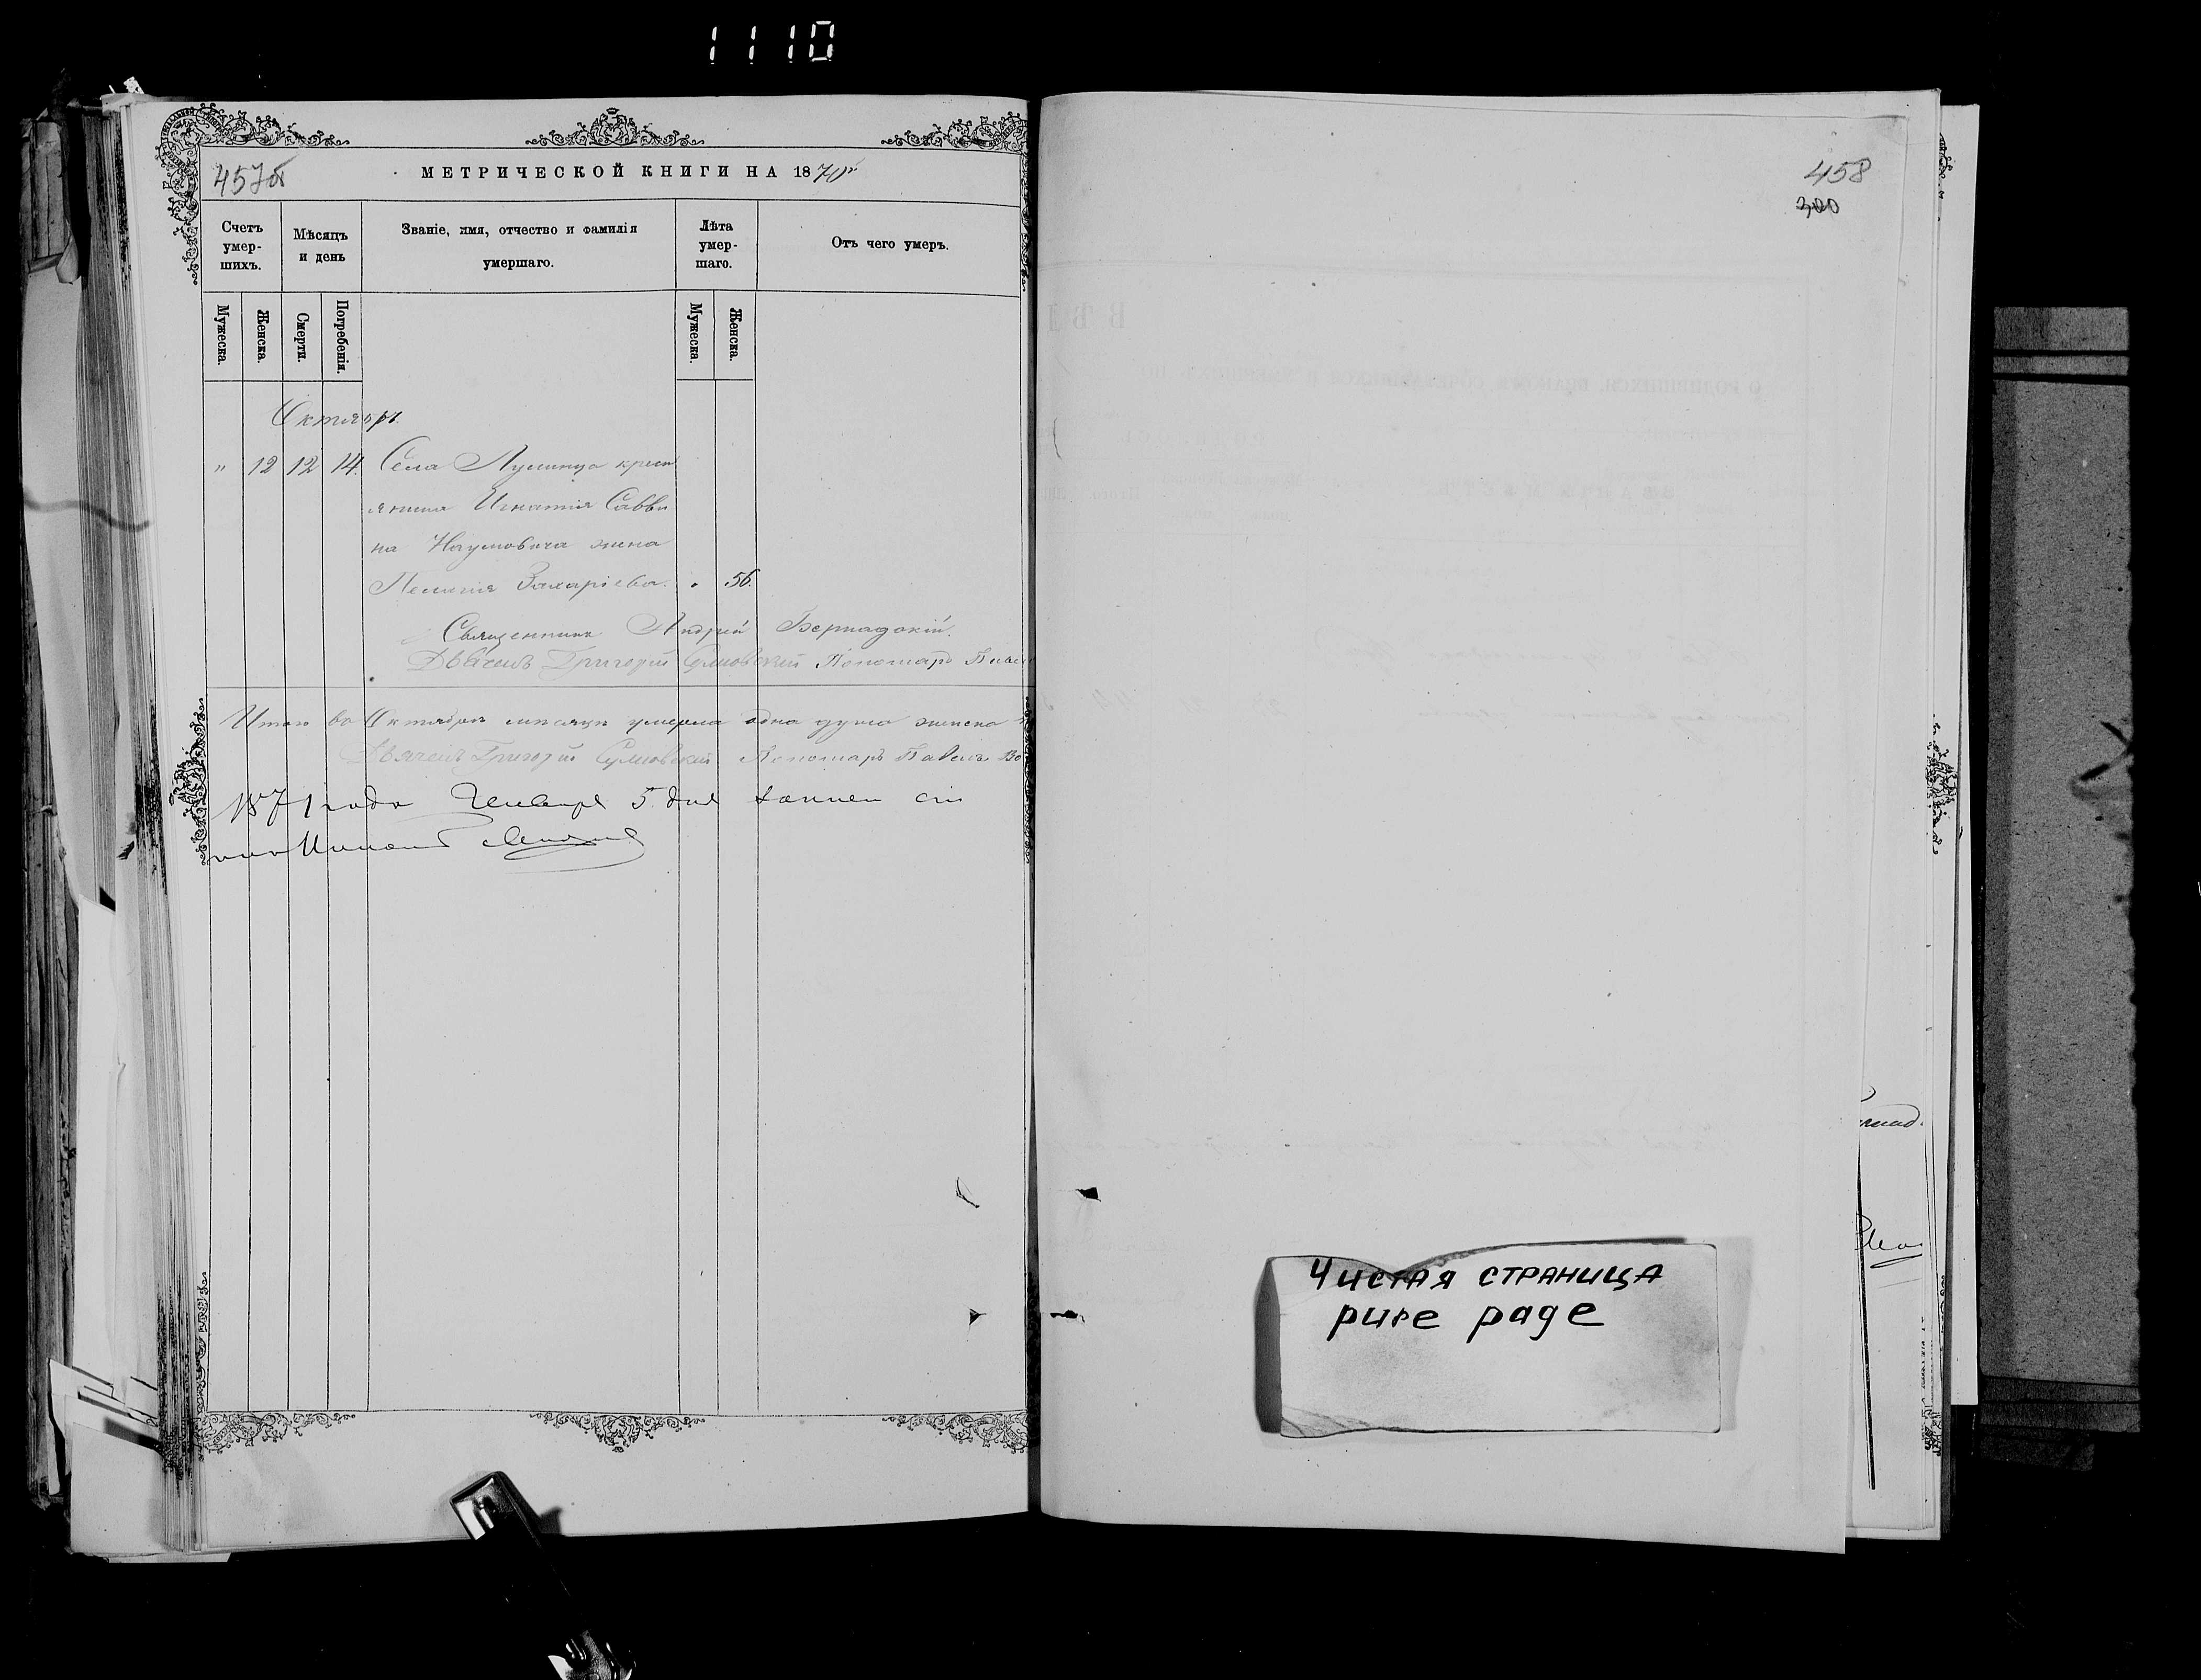 1110
457об
МЕТРИЧЕСКОЙ КНИГИ НА 1870й
Счетъ умер-шихъ.
Мѣсяцъ и день
Званіе, имя, отчество и фамилія умершаго.
Лѣта умер-шаго.
Отъ чего умеръ.
Мужеска.
Женска.
Смерти.
Погребенія.
Мужеска.
Женска.
Октябрь
" 12 12 14. Села Лунинца крест
янина Игнатія Савви
на Наумовича жена
Пелагія Захаріева. " 56.
Священникъ Андрей Бернадскій.
Дьячекъ Григорій Пономарь Павелъ
Итого во Октябрѣ мѣсяцѣ умерла одна душа женска
Дьячекъ Григорій Пономарь Павелъ Во
1871 года Генваря 5. дня
458
300
ЧИСТАЯ СТРАНИЦА
pure page